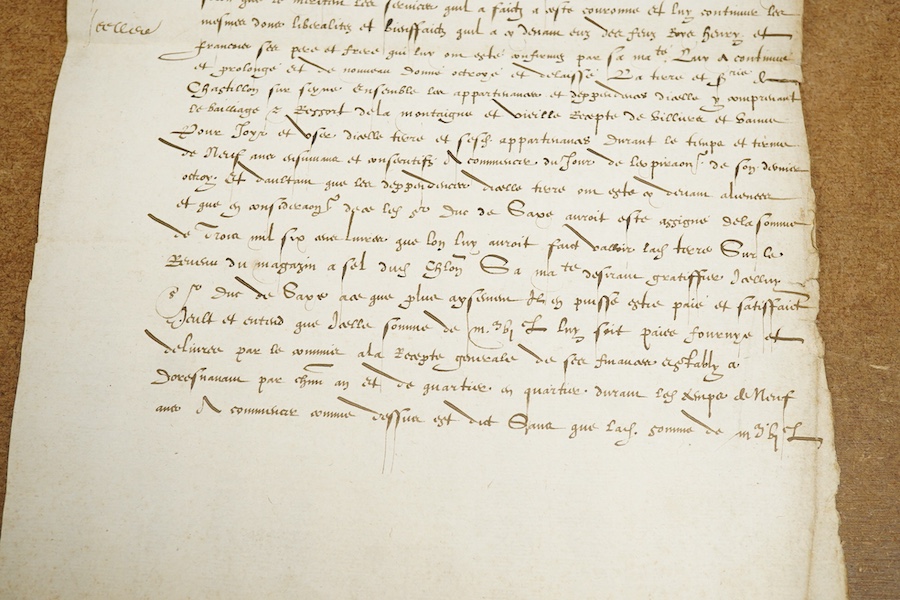 que le meritent les services quil a faictz a ceste couronne et luy continuer les
mesmes dons liberalitez et bienffaictz quil a cy devant euz des feuz Roys Henry et
Francois ses pere et frere qui luy ont esté confirmez par sa ma.te Luy a continué
et prolongé et de nouveau donné octroyé et delaissé La terre et s.rie de
Chastillon sur seyne ensemble les appartenances et deppendences dicelle y comprenant
le bailliage & Ressort de la montaigne et vieille Recepte de Villiers et
Pour Joyr et user dicelle terre et sesd. appartenances durant le temps et terme
de Neuf ans ensuivans et consecutifz A commancer du Jour de lexpiraon de son dernier
octroy Et daultant que les deppendences dicelle terre ont esté cy devant alienees
et que en consideraon de ce led. s.r Duc de Saxe auroit esté assigné de la somme
de Trois mil six cens livres que lon luy auroit faict valloir lad. terre Sur le
Revenu du magazin a sel dud. Chlon Sa ma.te desirant gratiffier Icelluy
s.r Duc de Saxe a ce que plus aysement Il en puisse estre paié et satisfaict
Veult et entend que Icelle somme de luy soit paiee fournye et
delivree par le commis a la Recepte generale de ses finances establye a
Doresnavant par chun an et de quartier en quartier durant led. temps de Neuf
ans A commancer comme dessus est dit Sans que lad. somme de